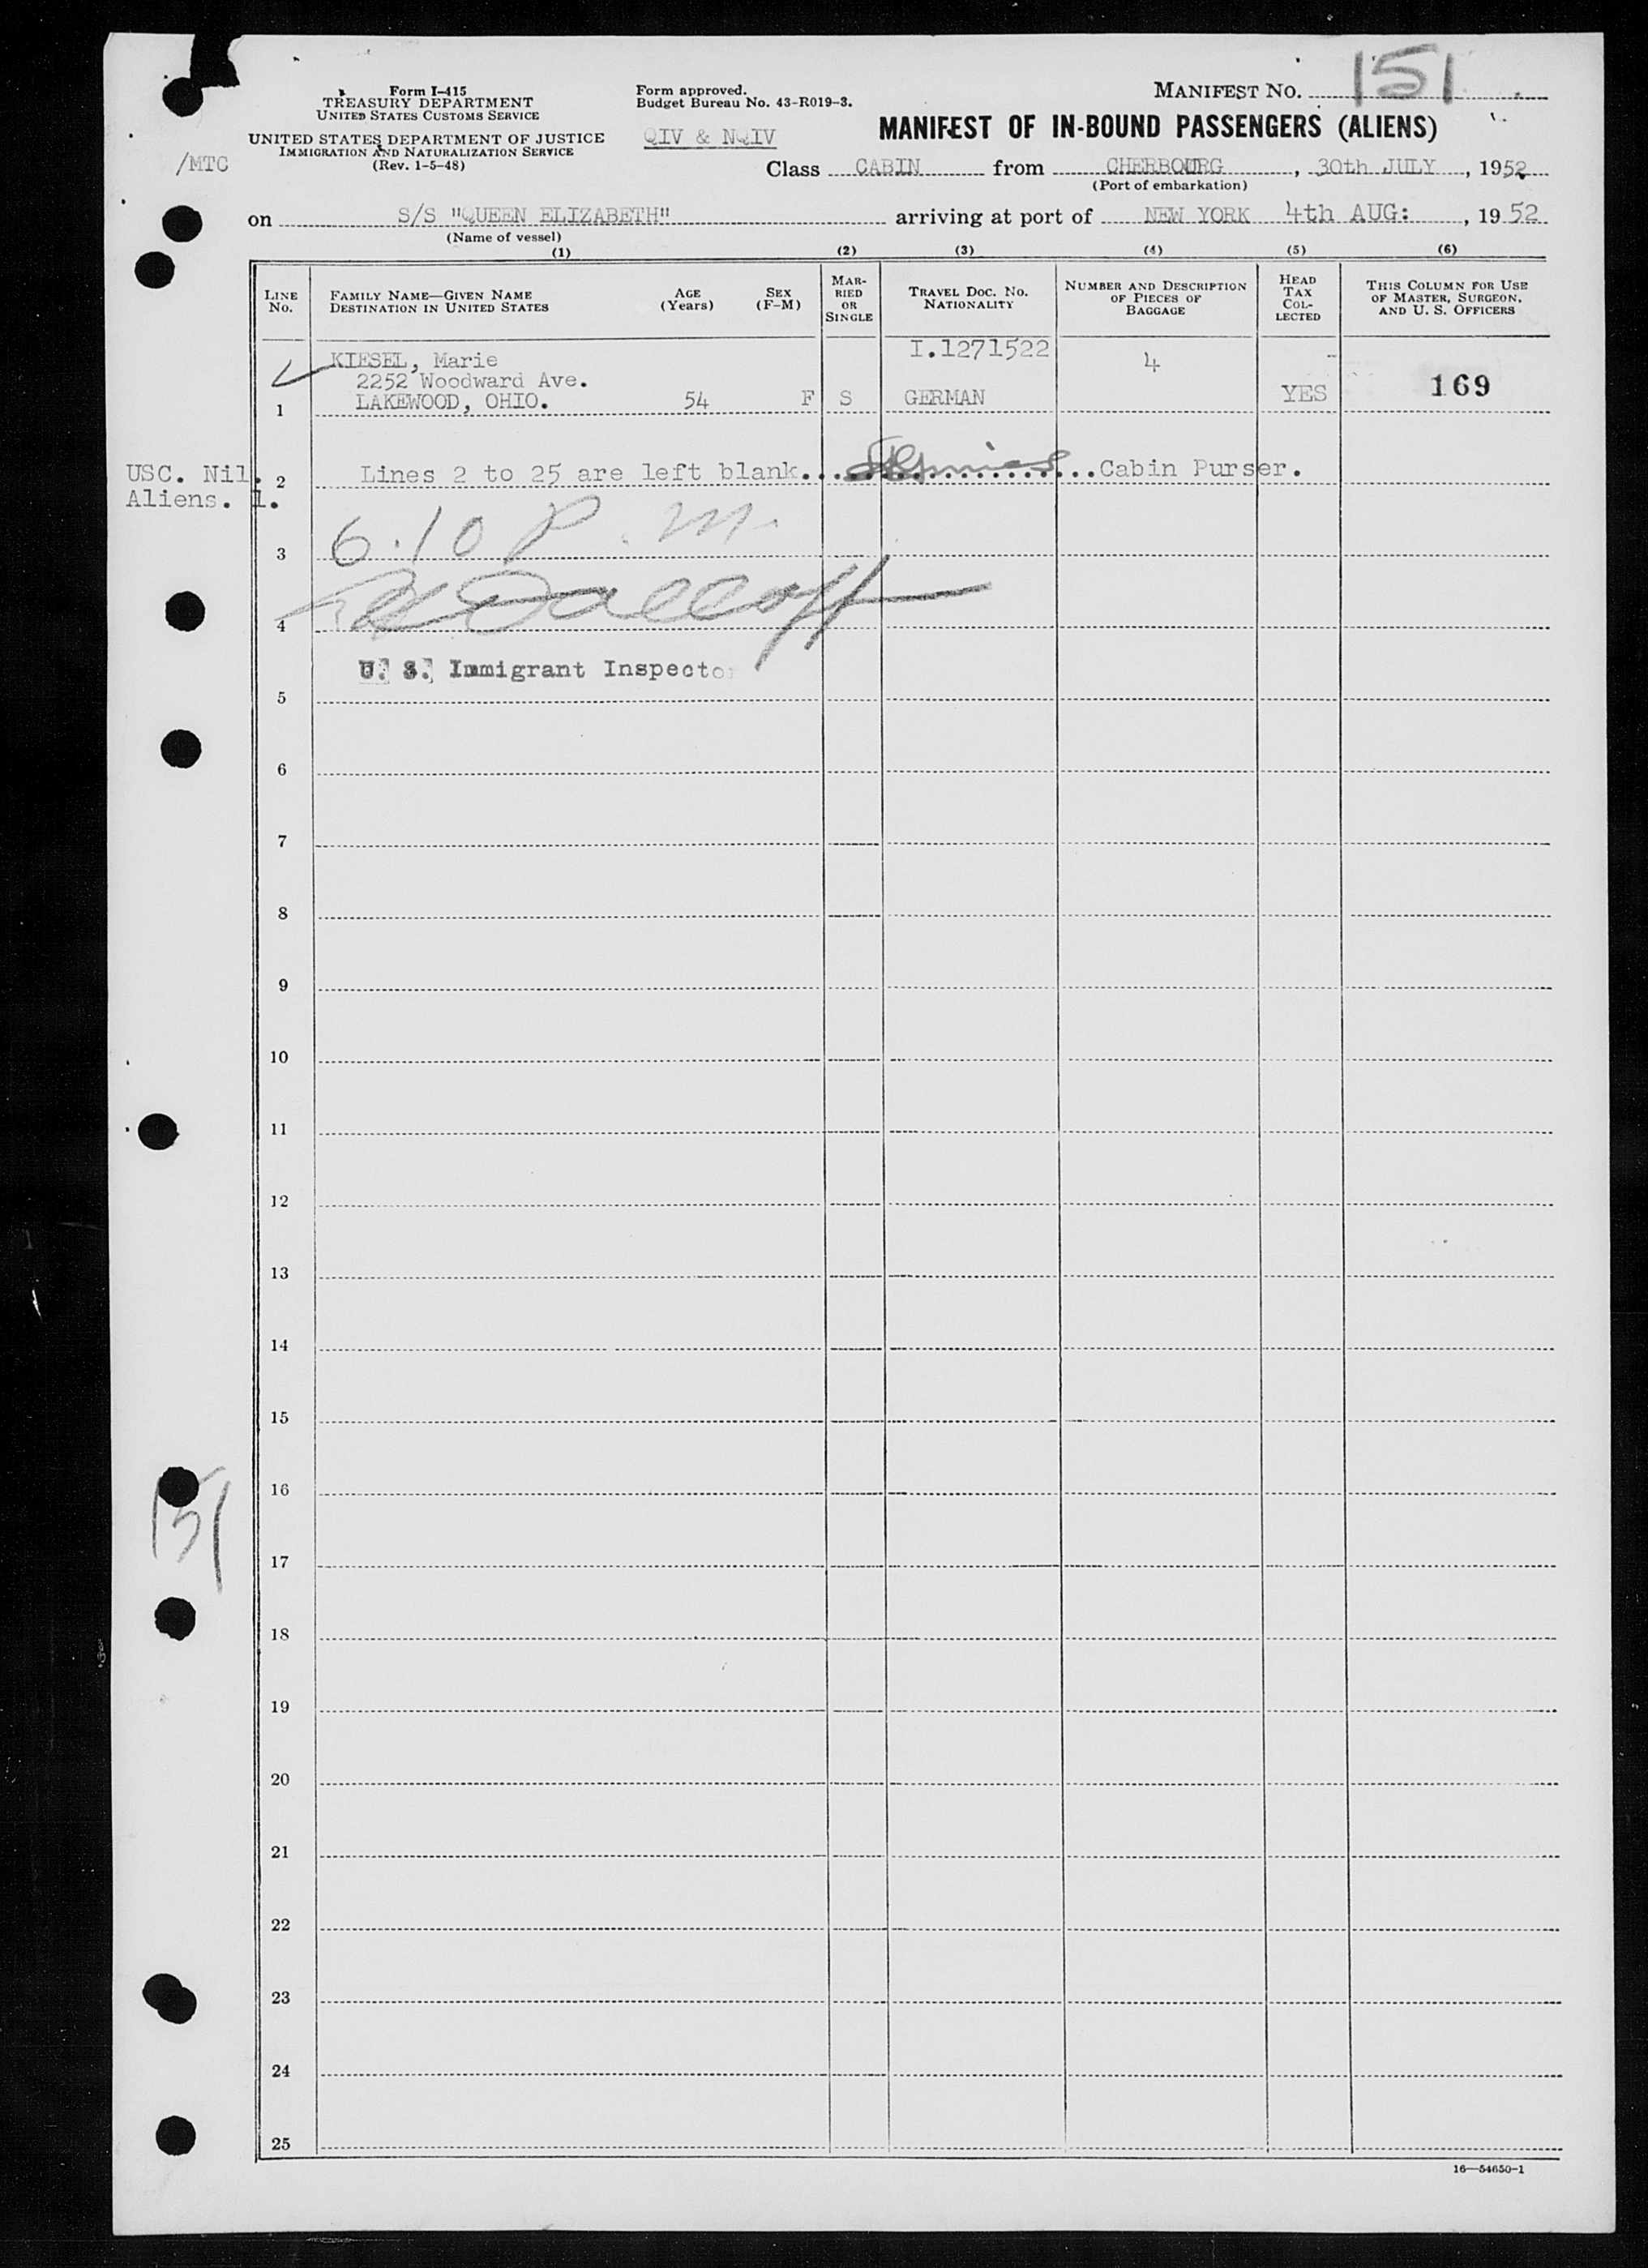 Form I-415
TREASURY DEPARTMENT
UNITED STATES CUSTOMS SERVICE
UNITED STATES DEPARTMENT OF JUSTICE
IMMIGRATION AND NATURALIZATION SERVICE
(Rev. 1-5-48)
/MTC
Form approved.
Budget Bureau No. 43-R019-3.
QIV & NQIV
MANIFEST NO. 151
MANIFEST OF IN-BOUND PASSENGERS (ALIENS)
Class CABIN from CHERBOURG, 30th JULY, 1952
(Port of embarkation)
on S/S "QUEEN ELIZABETH" arriving at port of NEW YORK 4th AUG:, 1952
(Name of vessel)
(1) (2) (3) (4) (5) (6)
LINE NO.
FAMILY NAME—GIVEN NAME DESTINATION IN UNITED STATES
AGE (Years)
SEX (F-M)
MARRIED OR SINGLE
TRAVEL DOC. NO. NATIONALITY
NUMBER AND DESCRIPTION OF PIECES OF BAGGAGE
HEAD TAX COLLECTED
THIS COLUMN FOR USE OF MASTER, SURGEON, AND U. S. OFFICERS
KIESEL, Marie I.1271522 4 -
2252 Woodward Ave.
1 LAKEWOOD, OHIO. 54 F S GERMAN YES 169
USC. Nil. 2 Lines 2 to 25 are left blank............Cabin Purser.
Aliens. 1.
3 6.10 P.M.
4
U. S. Immigrant Inspector
5
6
7
8
9
10
11
12
13
14
15
16
151
17
18
19
20
21
22
23
24
25
16—54650-1